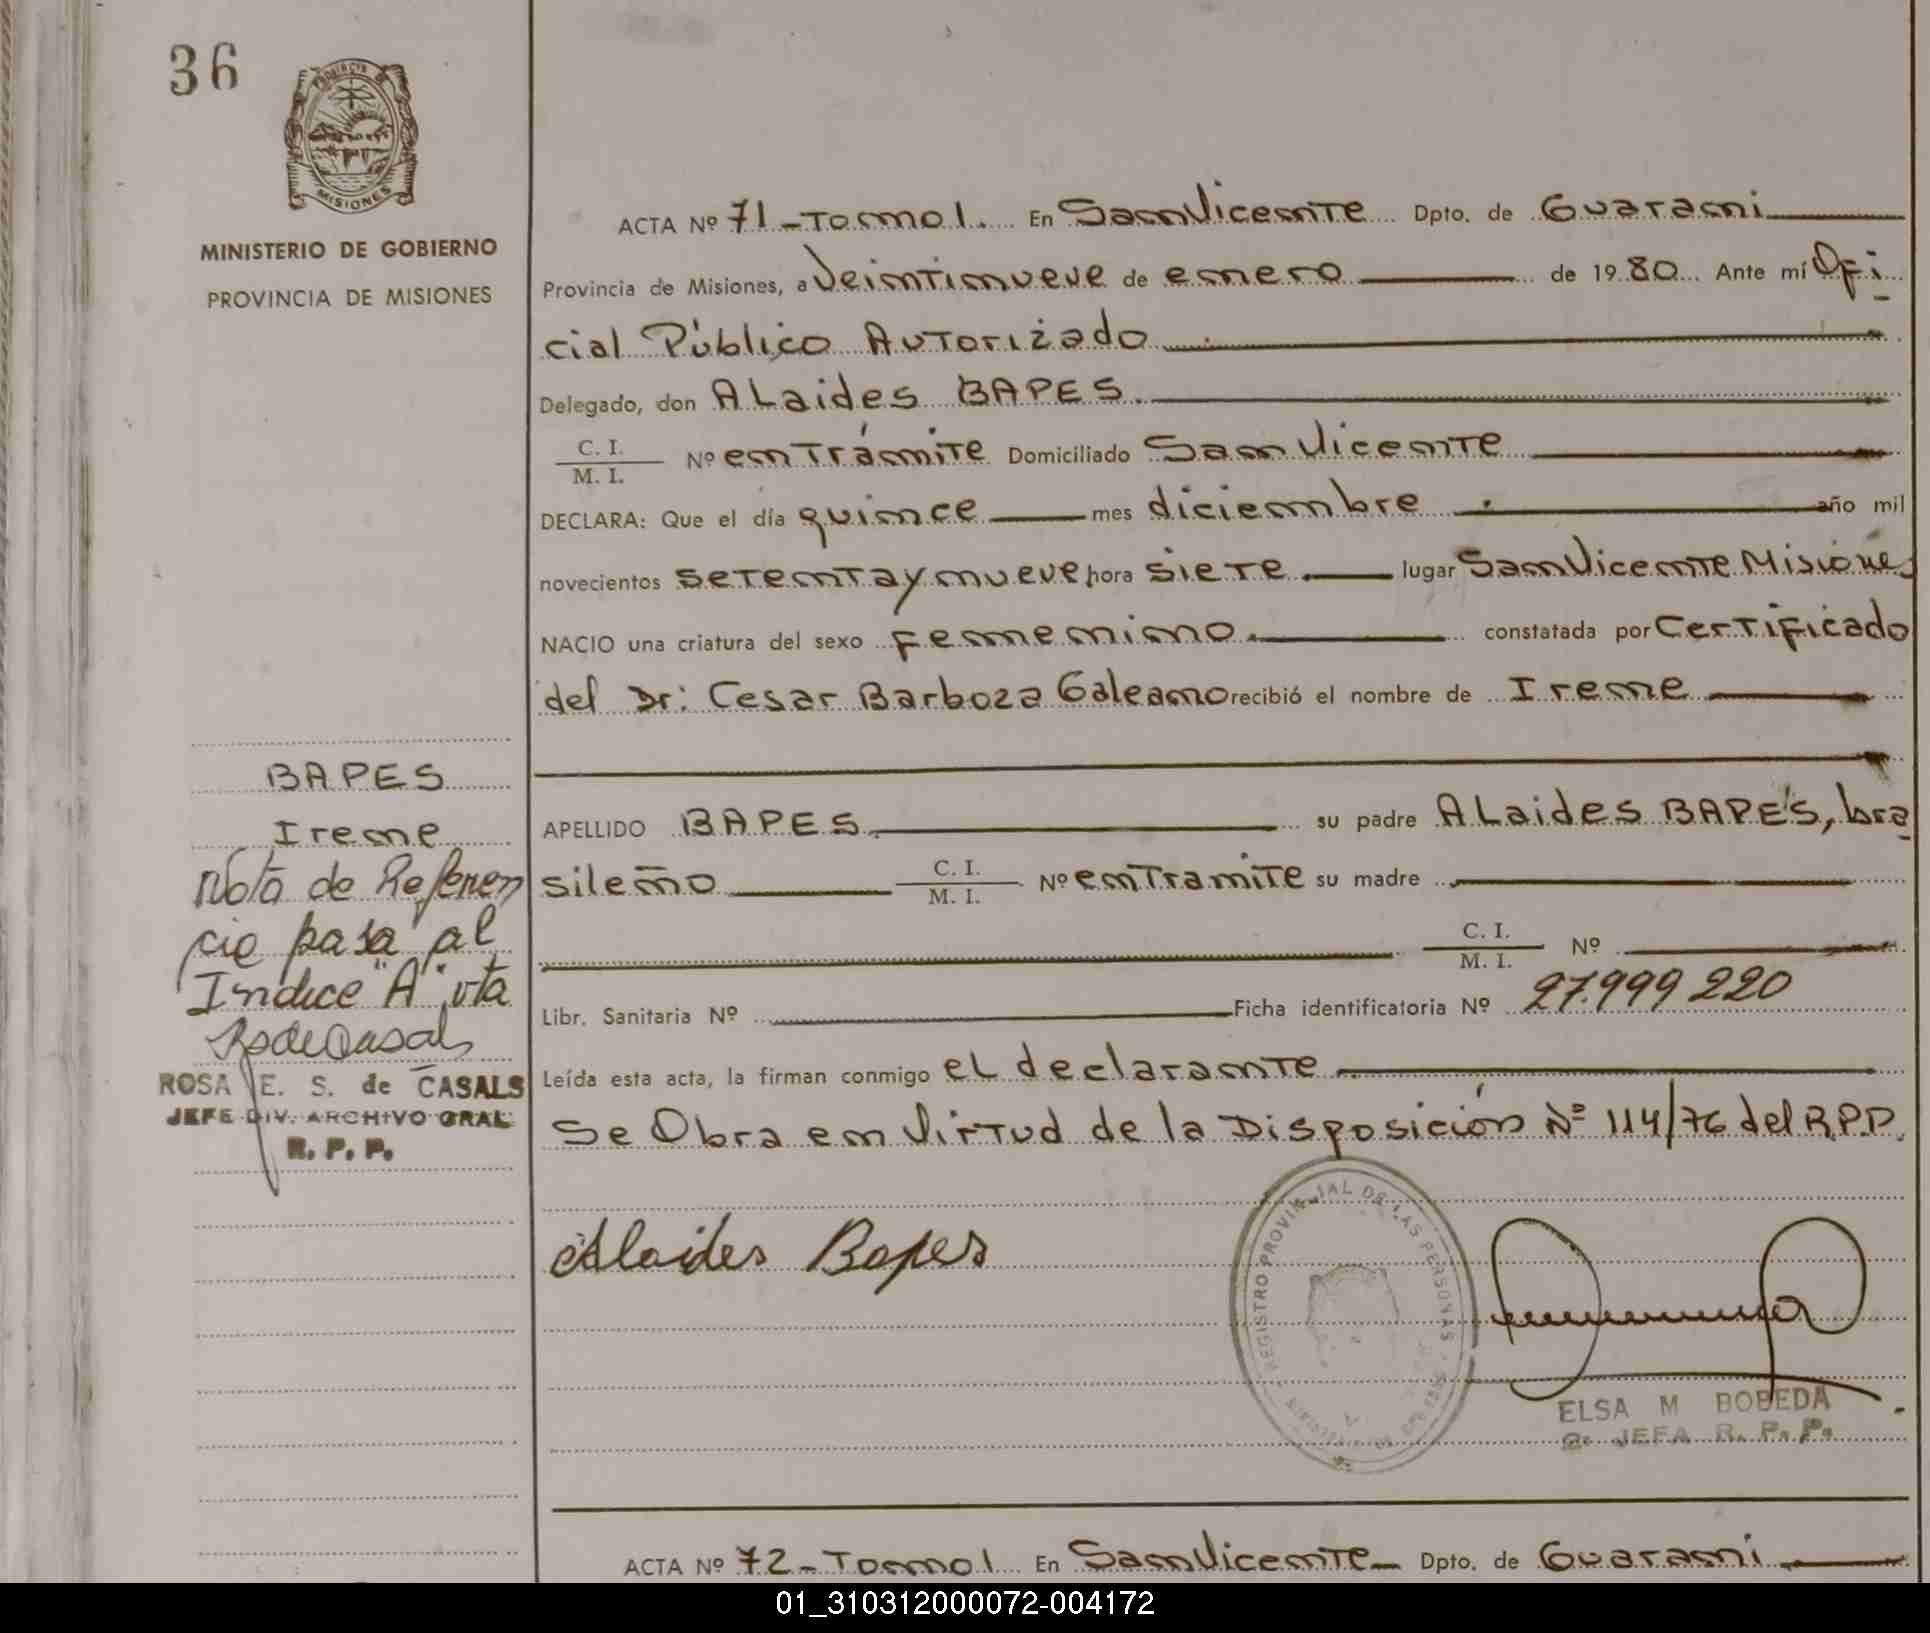 36
PROVINCIA DE
MISIONES
MINISTERIO DE GOBIERNO
PROVINCIA DE MISIONES
ACTA Nº 71 - Tomo 1. En San Vicente Dpto. de Guaraní
Provincia de Misiones, a Veintinueve de enero de 1980 Ante mí Ofi
cial Público Autorizado
Delegado, don ALaides BAPES.
C. I.
M. I. Nº en Trámite Domiciliado San Vicente
DECLARA: Que el día quince mes diciembre año mil
novecientos setenta y nueve hora siete lugar San Vicente Misiones
NACIO una criatura del sexo femenino. constatada por Certificado
del Dr: Cesar Barboza Galeano recibió el nombre de Irene
APELLIDO BAPES su padre ALaides BAPES, bra
sileño C. I.
M. I. Nº en Tramite su madre
C. I.
M. I. Nº
Libr. Sanitaria Nº Ficha identificatoria Nº 27.999 220
Leída esta acta, la firman conmigo el declarante
Se Obra en Virtud de la Disposición Nº 114/76 del R.P.P.
Alaides Bapes
REGISTRO PROVINCIAL DE LAS PERSONAS
ELSA M BOBEDA
JEFA R. P. P.
BAPES
Irene
Nota de Referen
cia pasa al
Indice "A" vta
ROSA E. S. de CASALS
JEFE DIV. ARCHIVO GRAL.
R. P. P.
ACTA Nº 72 - Tomo 1 En San Vicente Dpto. de Guaraní
01_310312000072-004172